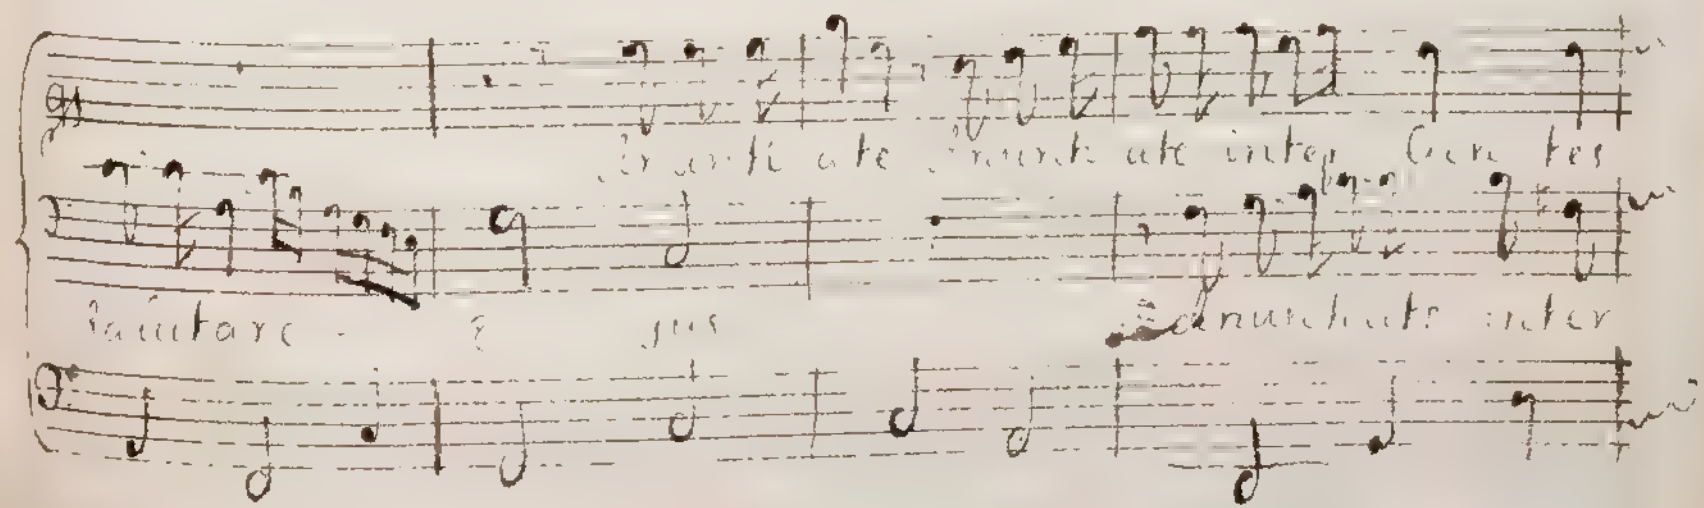 Annunti ate Annunti ate inter Gen tes
Salutare - e jus
Adnuntiate inter